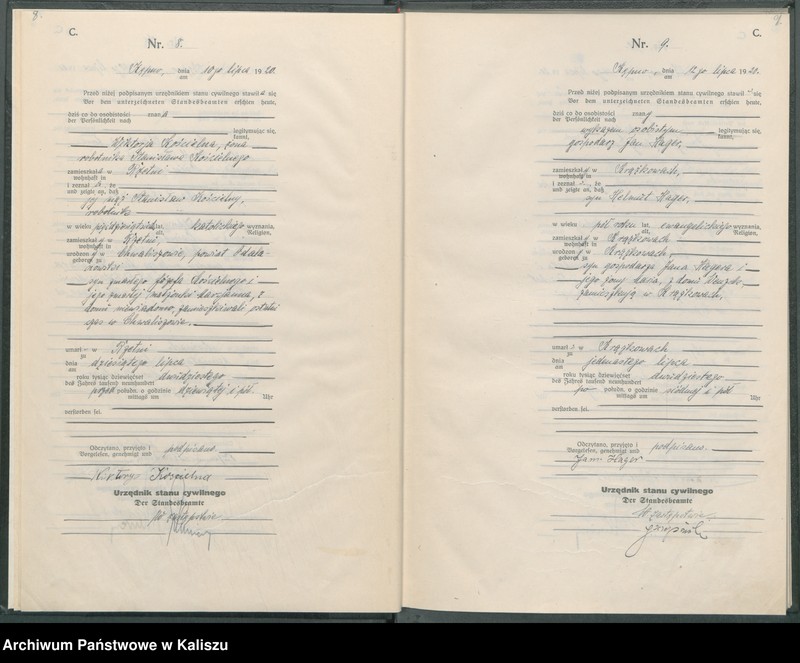 8.
C.
Nr. 8.
Kępno, dnia am 10go lipca 1920.
Przed niżej podpisanym urzędnikiem stanu cywilnego stawił a się
Vor dem unterzeichneten Standesbeamten erschien heute,
dziś co do osobistości znana
der Persönlichkeit nach
legitymując się,
kannt,
Wiktorja Kościelna, żona
robotnika Stanisława Kościelnego
zamieszkała w Rzetni
wohnhaft in
i zeznała, że
und zeigte an, daß
jej mąż Stanisław Kościelny,
robotnik
w wieku lat, katolickiego wyznania,
alt, Religion,
zamieszkały w Rzetni,
wohnhaft in
urodzony w Chwaliszewie, powiat Odala-
geboren zu
nowski
syn zmarłego Józefa Kościelnego i
jego zmarłej małżonki z
domu niewiadomo, zamieszkiwali ostatni
czas w Chwaliszewie.
umarł w Rzetni
zu
dnia dziesiątego lipca
am
roku tysiąc dziewięćset dwudziestego
des Jahres tausend neunhundert
przed połudn. o godzinie dziewiątej i pół.
mittags um Uhr
verstorben sei.
Odczytano, przyjęto i podpisano.
Vorgelesen, genehmigt und
Kościelna
Urzędnik stanu cywilnego
Der Standesbeamte
W zastępstwie
9.
C.
Nr. 9.
Kępno, dnia am 12go lipca 1920.
Przed niżej podpisanym urzędnikiem stanu cywilnego stawił się
Vor dem unterzeichneten Standesbeamten erschien heute,
dziś co do osobistości znany
der Persönlichkeit nach
wykazem osobistym legitymując się,
kannt,
gospodarz Jan Hager,
zamieszkały w Krążkowach,
wohnhaft in
i zeznał, że
und zeigte an, daß
syn Helmut Hager,
w wieku pół roku lat, ewangelickiego wyznania,
alt, Religion,
zamieszkały w Krążkowach
wohnhaft in
urodzony w Krążkowach
geboren zu
syn gospodarza Jana Hagera i
jego żony z domu
zamieszkują w Krążkowach,
umarł w Krążkowach
zu
dnia jedenastego lipca
am
roku tysiąc dziewięćset dwudziestego
des Jahres tausend neunhundert
po połudn. o godzinie siódmej i pół
mittags um Uhr
verstorben sei.
Odczytano, przyjęto i podpisano.
Vorgelesen, genehmigt und
Hager
Urzędnik stanu cywilnego
Der Standesbeamte
W zastępstwie
Archiwum Państwowe w Kaliszu